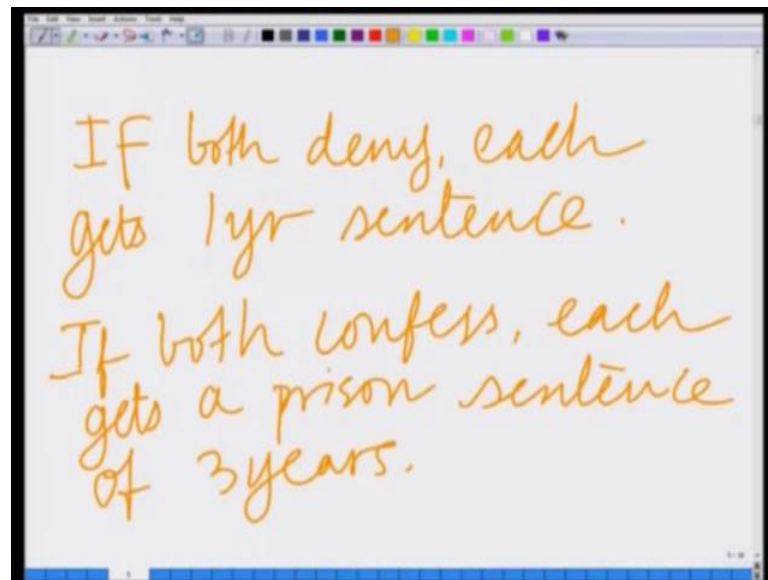 File Edit View Insert Actions Tools Help
If both deny, each
gets 1yr sentence.
If both confess, each
gets a prison sentence
of 3 years.